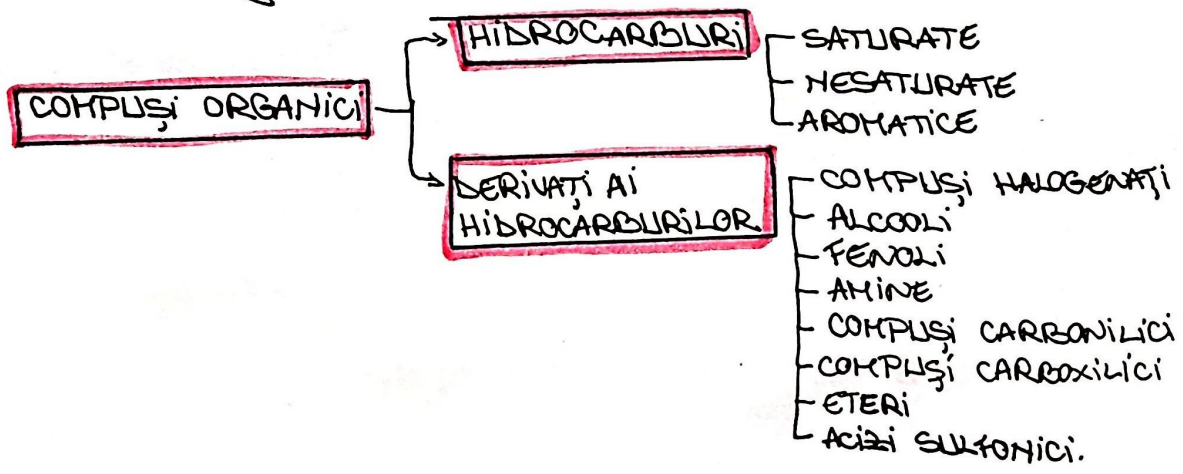 HIDROCARBURI
SATURATE
NESATURATE
AROMATICE
COMPUȘI ORGANICI
DERIVAȚI AI
HIDROCARBURILOR.
COMPUȘI HALOGENAȚI
ALCOOLI
FENOLI
AMINE
COMPUȘI CARBONILICI
COMPUȘI CARBOXILICI
ETERI
ACIZI SULFONICI.